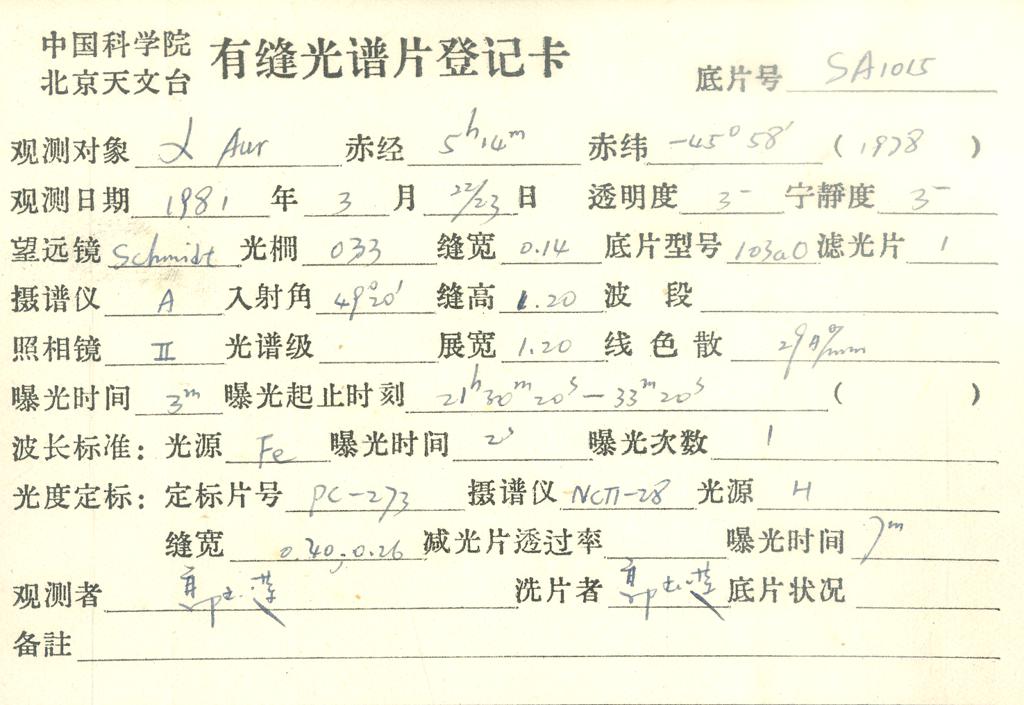 中国科学院
北京天文台 有缝光谱片登记卡 底片号 SA1015
观测对象 α Aur 赤经 5h14m 赤纬 -45°58' (1978)
观测日期 1981 年 3 月 22/23 日 透明度 3- 宁静度 3-
望远镜 Schmidt 光栅 033 缝宽 0.14 底片型号 103aO 滤光片 1
摄谱仪 A 入射角 49°20' 缝高 1.20 波段
照相镜 II 光谱级 展宽 1.20 线色散 29Å/mm
曝光时间 3m 曝光起止时刻 21h30m20s—33m20s ( )
波长标准: 光源 Fe 曝光时间 2s 曝光次数 1
光度定标: 定标片号 PC-273 摄谱仪 光源 H
缝宽 0.40;0.26 减光片透过率 曝光时间 7m
观测者 洗片者 底片状况
备註